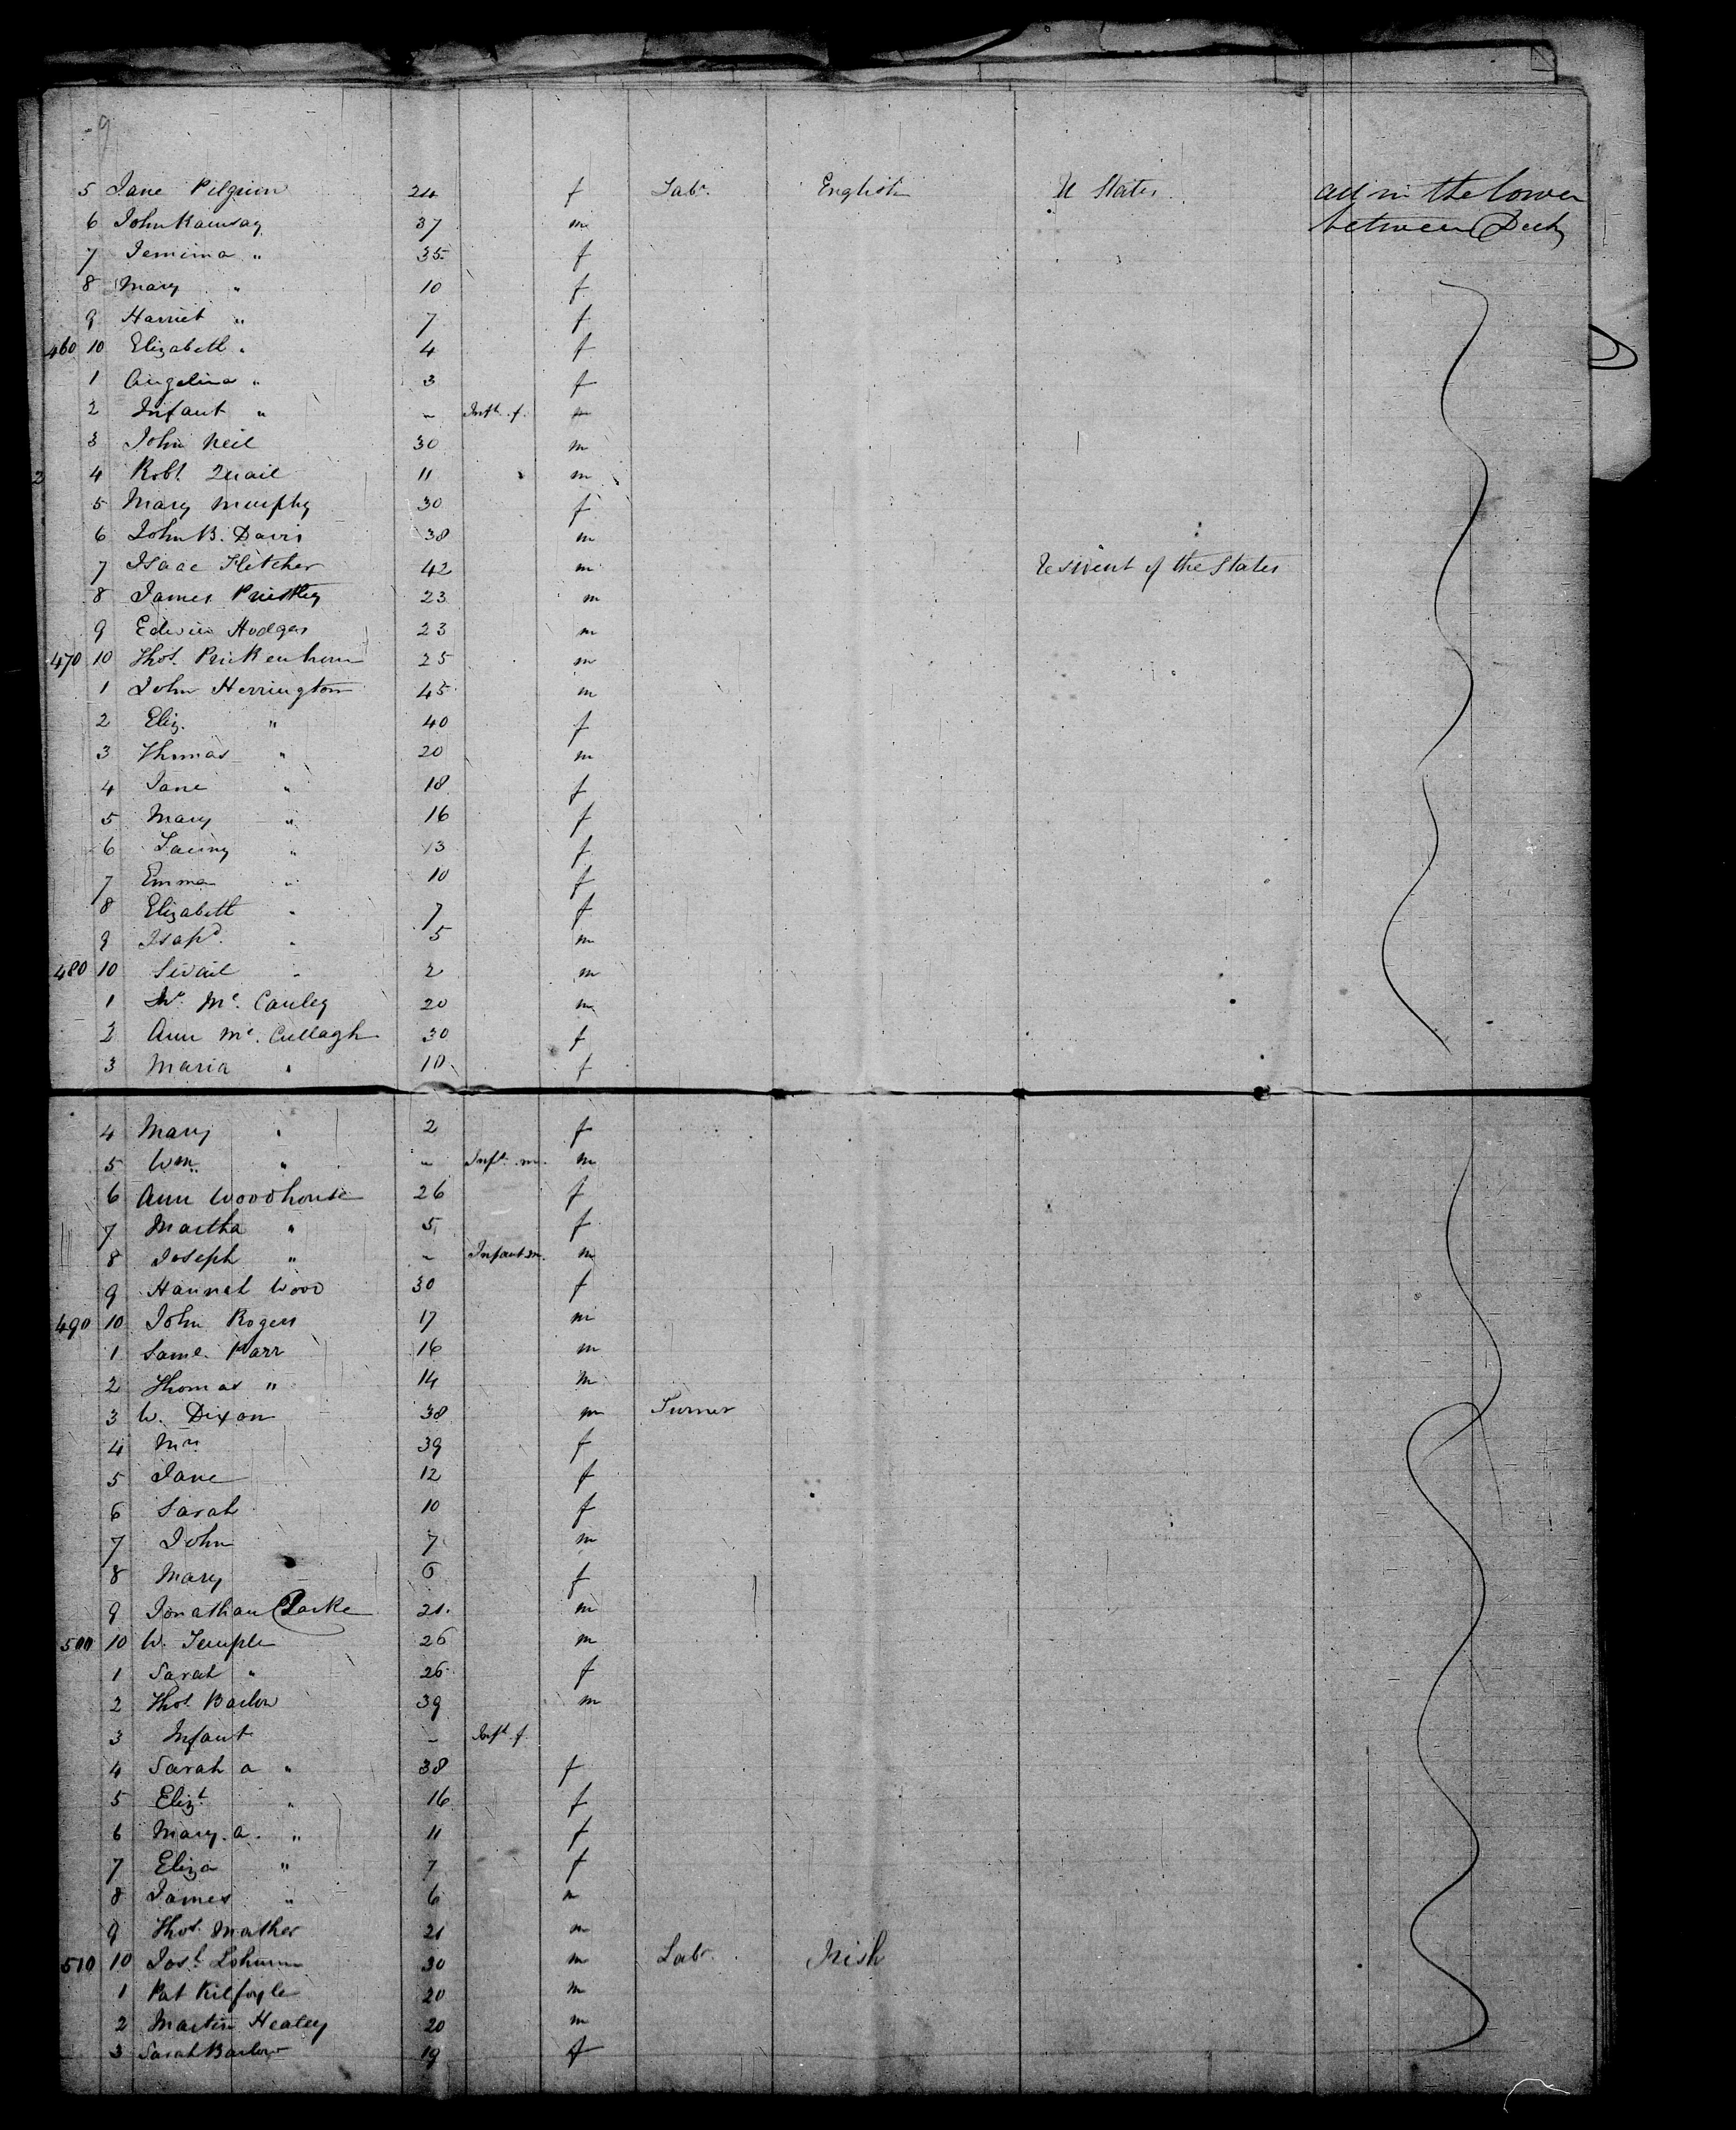 9
5 Jane Pilgrim 24 f Labr. English U States all in the lower
6 John Ramsay 37 m between Decks
7 Jemima " 35 f
8 Mary " 10 f
9 Harriet " 7 f
460 10 Elizabeth " 4 f
1 Angelina " 3 f
2 Infant " - Inft. f.
3 John Neil 30 m
2 4 Robt. Quail 11 m
5 Mary Murphy 30 f
6 John B. Davis 38 m
7 Isaac Fletcher 42 m Resident of the States
8 James Priestley 23 m
9 Edwin Hodges 23 m
470 10 Thos. 25 m
1 John Herrington 45 m
2 Eliz. " 40 f
3 Thomas " 20 m
4 Jane " 18 f
5 Mary " 16 f
6 " 13 f
7 Emma " 10 f
8 Elizabeth " 7 f
9 " 5 m
480 10 " 2 m
1 Mc. Cauley 20 m
2 Ann Mc. Cullagh 30 f
3 Maria " 10 f
4 Mary " 2 f
5 Wm. " - Inft. m. m
6 Ann Woodhouse 26 f
7 Martha " 5 f
8 Joseph " - Infant m. m
9 Hannah Wood 30 f
490 10 John Rogers 17 m
1 Saml. Parr 16 m
2 Thomas " 14 m
3 W. Dixon 38 m Turner
4 Mrs 39 f
5 Jane 12 f
6 Sarah 10 f
7 John 7 m
8 Mary 6 f
9 Jonathan Clarke 21 m
500 10 W. Temple 26 m
1 Sarah " 26 f
2 Thos. Barlow 39 m
3 Infant - Inft. f
4 Sarah a " 38 f
5 Elizt. " 16 f
6 Mary. a. " 11 f
7 Eliza " 7 f
8 James " 6 m
9 Thos. Mather 21 m
510 10 Josh. 30 m Labr. Irish
1 Pat Kilfoyle 20 m
2 Martin Healey 20 m
3 Sarah Barlow 19 f